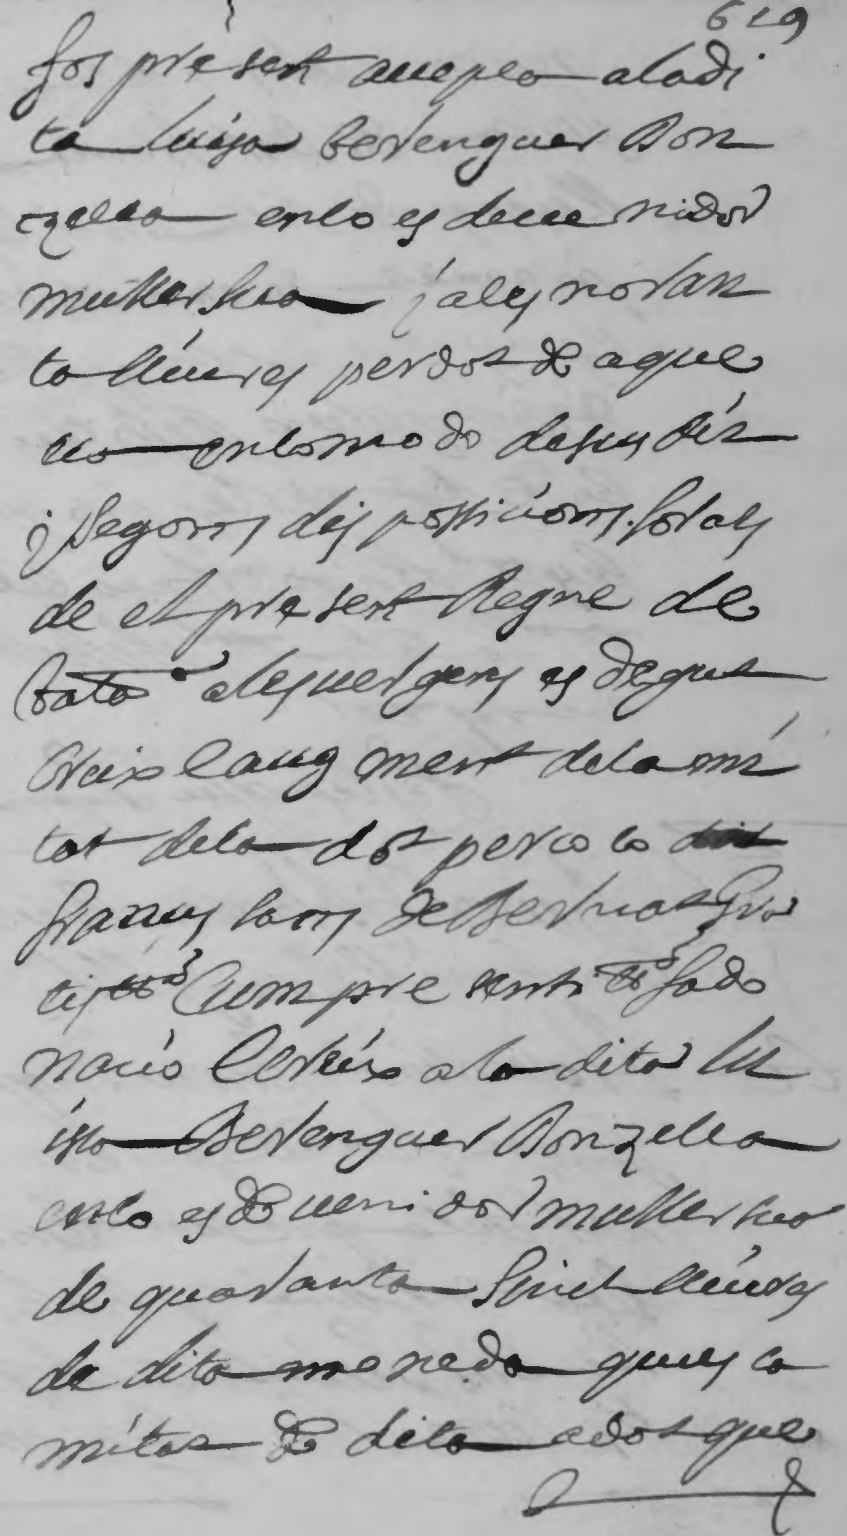 619
fos present accepta a la di
ta luisa berenguer Don
zella en lo es devenidor
muller sua i a les noran
ta lliures per dot de aque
lla en lo modo desus dit
i segons dispossicions forals
de el present Regne de
Vala.a a les vergens es degut
Creix e augment de la mi
tat de la dot perço lo dit
frances sans de Bernat Gra
tis Cum presenti fa do
nacio e creix a la dita lu
isa Berenguer Donzella
en lo es devenidor muller sua
de quaranta sinch lliures
de dita moneda que es la
mitat de dita adot que